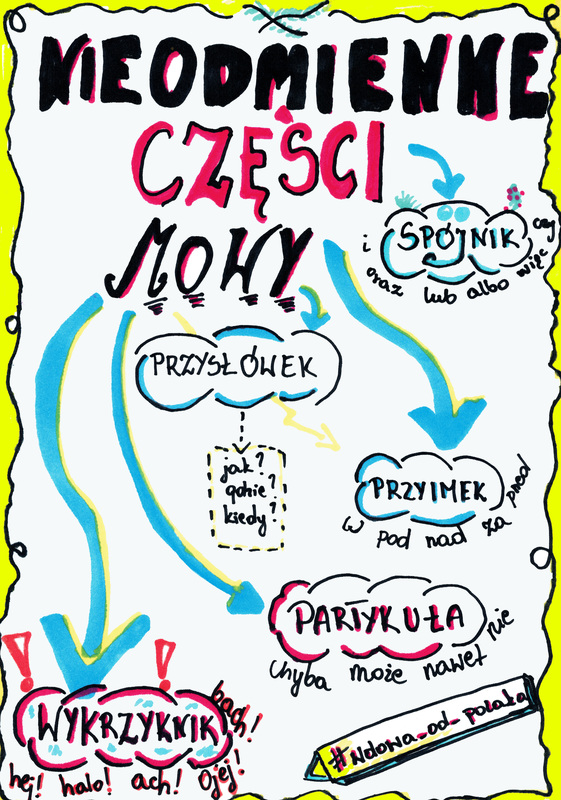 NIEODMIENNE
CZĘŚCI
MOWY
SPÓJNIK
i oraz lub albo więc czy
PRZYSŁÓWEK
jak?
gdzie?
kiedy?
PRZYIMEK
w pod nad za przed
PARTYKUŁA
chyba może nawet nie
WYKRZYKNIK
hej! halo! ach! Ojej! bach!
#wdowa_od_polaka